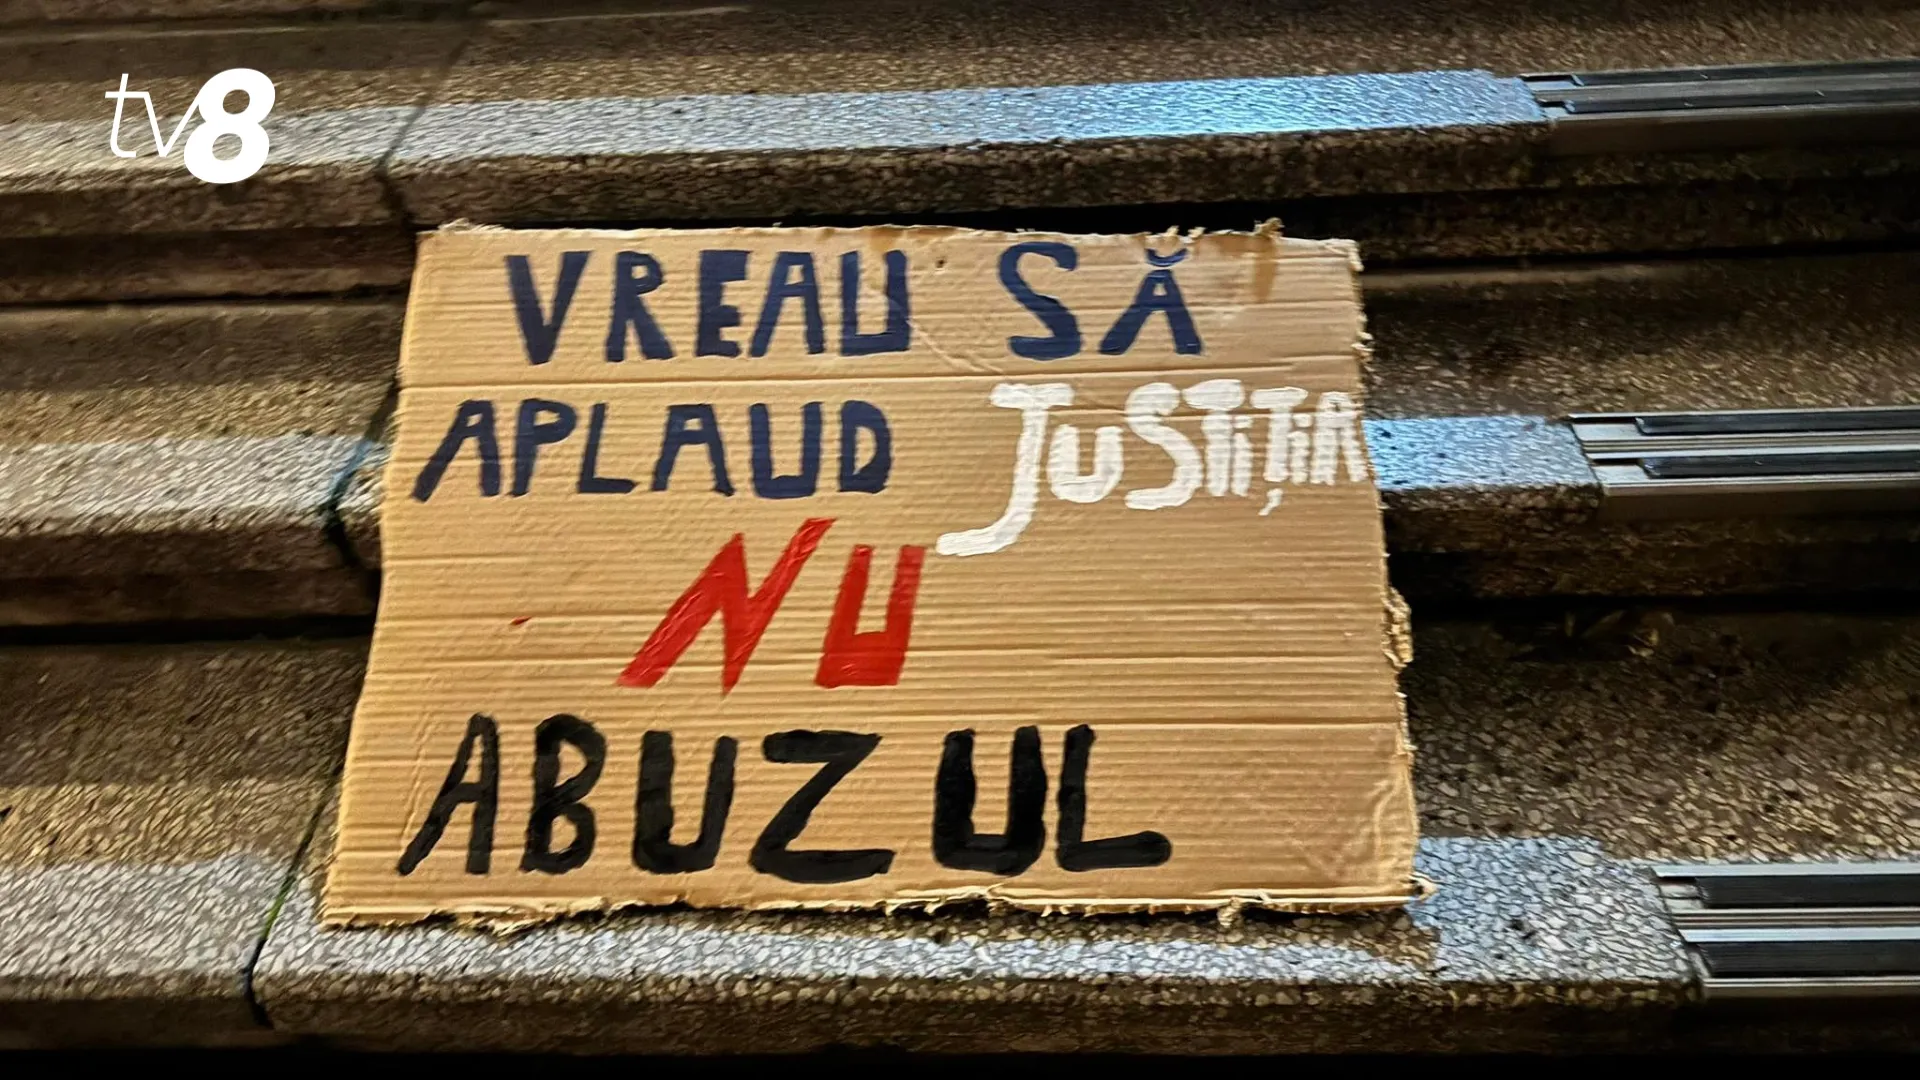 tv8
VREAU SĂ
APLAUD JUSTIȚIA
NU
ABUZUL